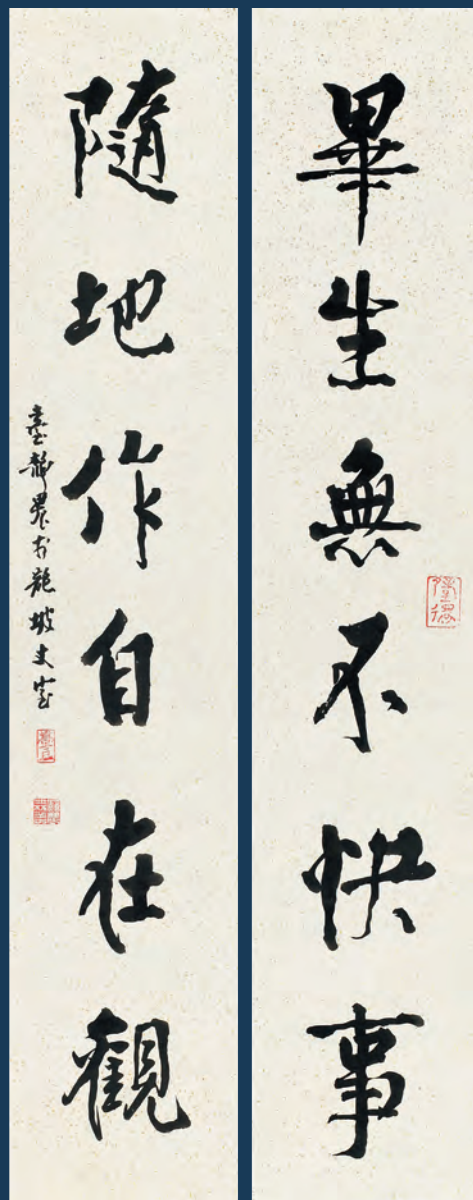 畢生無不快事
隨地作自在觀
臺靜農於龍坡丈室